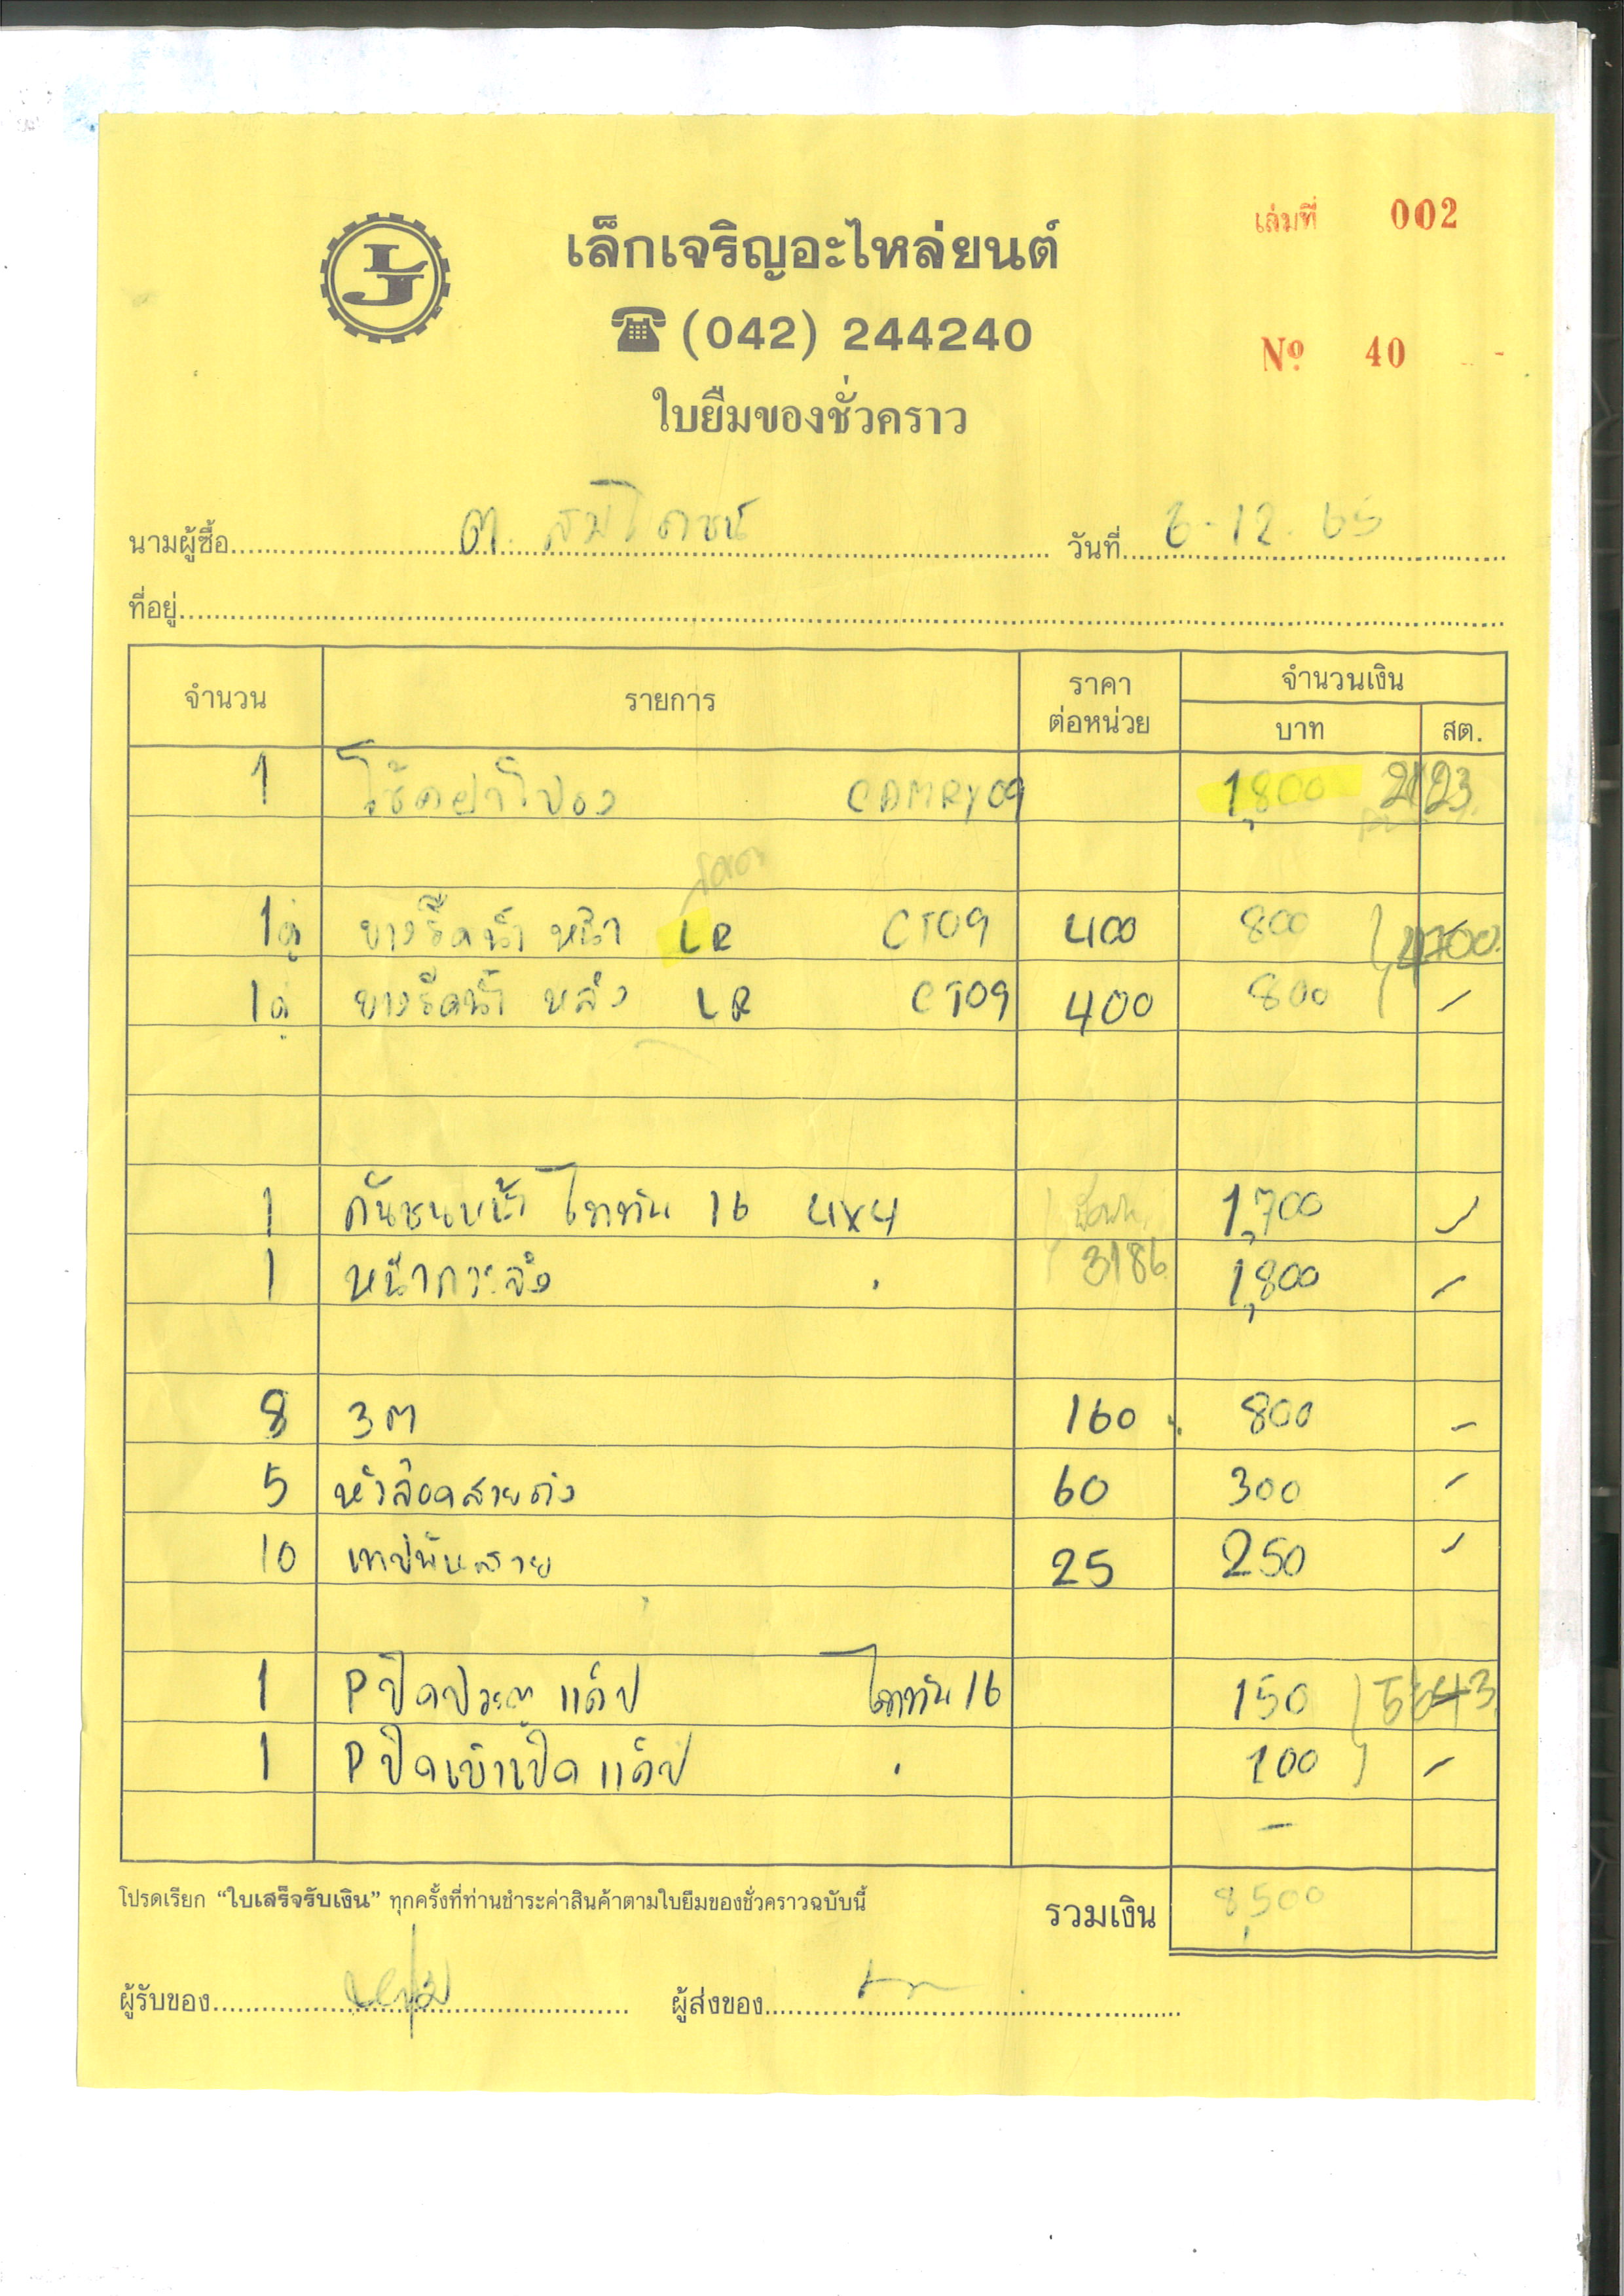 LJ
เล็กเจริญอะไหล่ยนต์
เล่มที่ 002
☎ (042) 244240
№ 40
ใบยืมของชั่วคราว
นามผู้ซื้อ วันที่ 6-12-65
ที่อยู่
จำนวน รายการ ราคาต่อหน่วย จำนวนเงิน
บาท สต.
1 โช้คฝาโปรง CAMRY09 1,800 2123
1คู่ ยางรีดน้ำ หน้า LR CT09 400 800 4700
1คู่ ยางรีดน้ำ หลัง LR CT09 400 800 -
1 กันชนหน้า ไททัน 16 4x4 1,700 -
1 หน้ากระจัง . 3186 1,800 -
8 3M 160 800 -
5 หัวล๊อคสายถัง 60 300 -
10 เทปพันสาย 25 250 -
1 Pปิดประตู แค๊ป ไททัน 16 150
1 Pปิดเบ้าเปิด แค๊ป . 100 -
-
โปรดเรียก “ใบเสร็จรับเงิน” ทุกครั้งที่ท่านชำระค่าสินค้าตามใบยืมของชั่วคราวฉบับนี้
รวมเงิน 8,500
ผู้รับของ ผู้ส่งของ